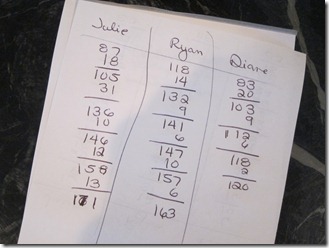 Julie
87
18
105
31
136
10
146
12
158
13
171
Ryan
118
14
132
9
141
6
147
10
157
6
163
Diane
83
20
103
9
112
6
118
2
120